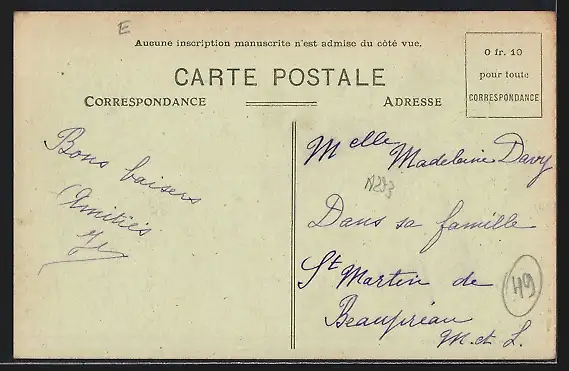 E
Aucune inscription manuscrite n'est admise du côté vue.
CARTE POSTALE
CORRESPONDANCE
ADRESSE
0 fr. 10
pour toute
CORRESPONDANCE
Bons baisers
Amitiés
Melle Madeleine Davy
Dans sa famille
St Martin de
Beaupréau
M. et L.
49